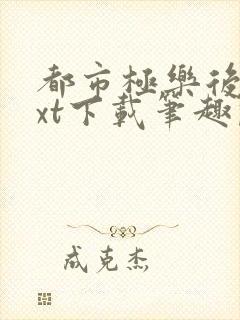 都市極樂後
xt下載筆趣
成克杰